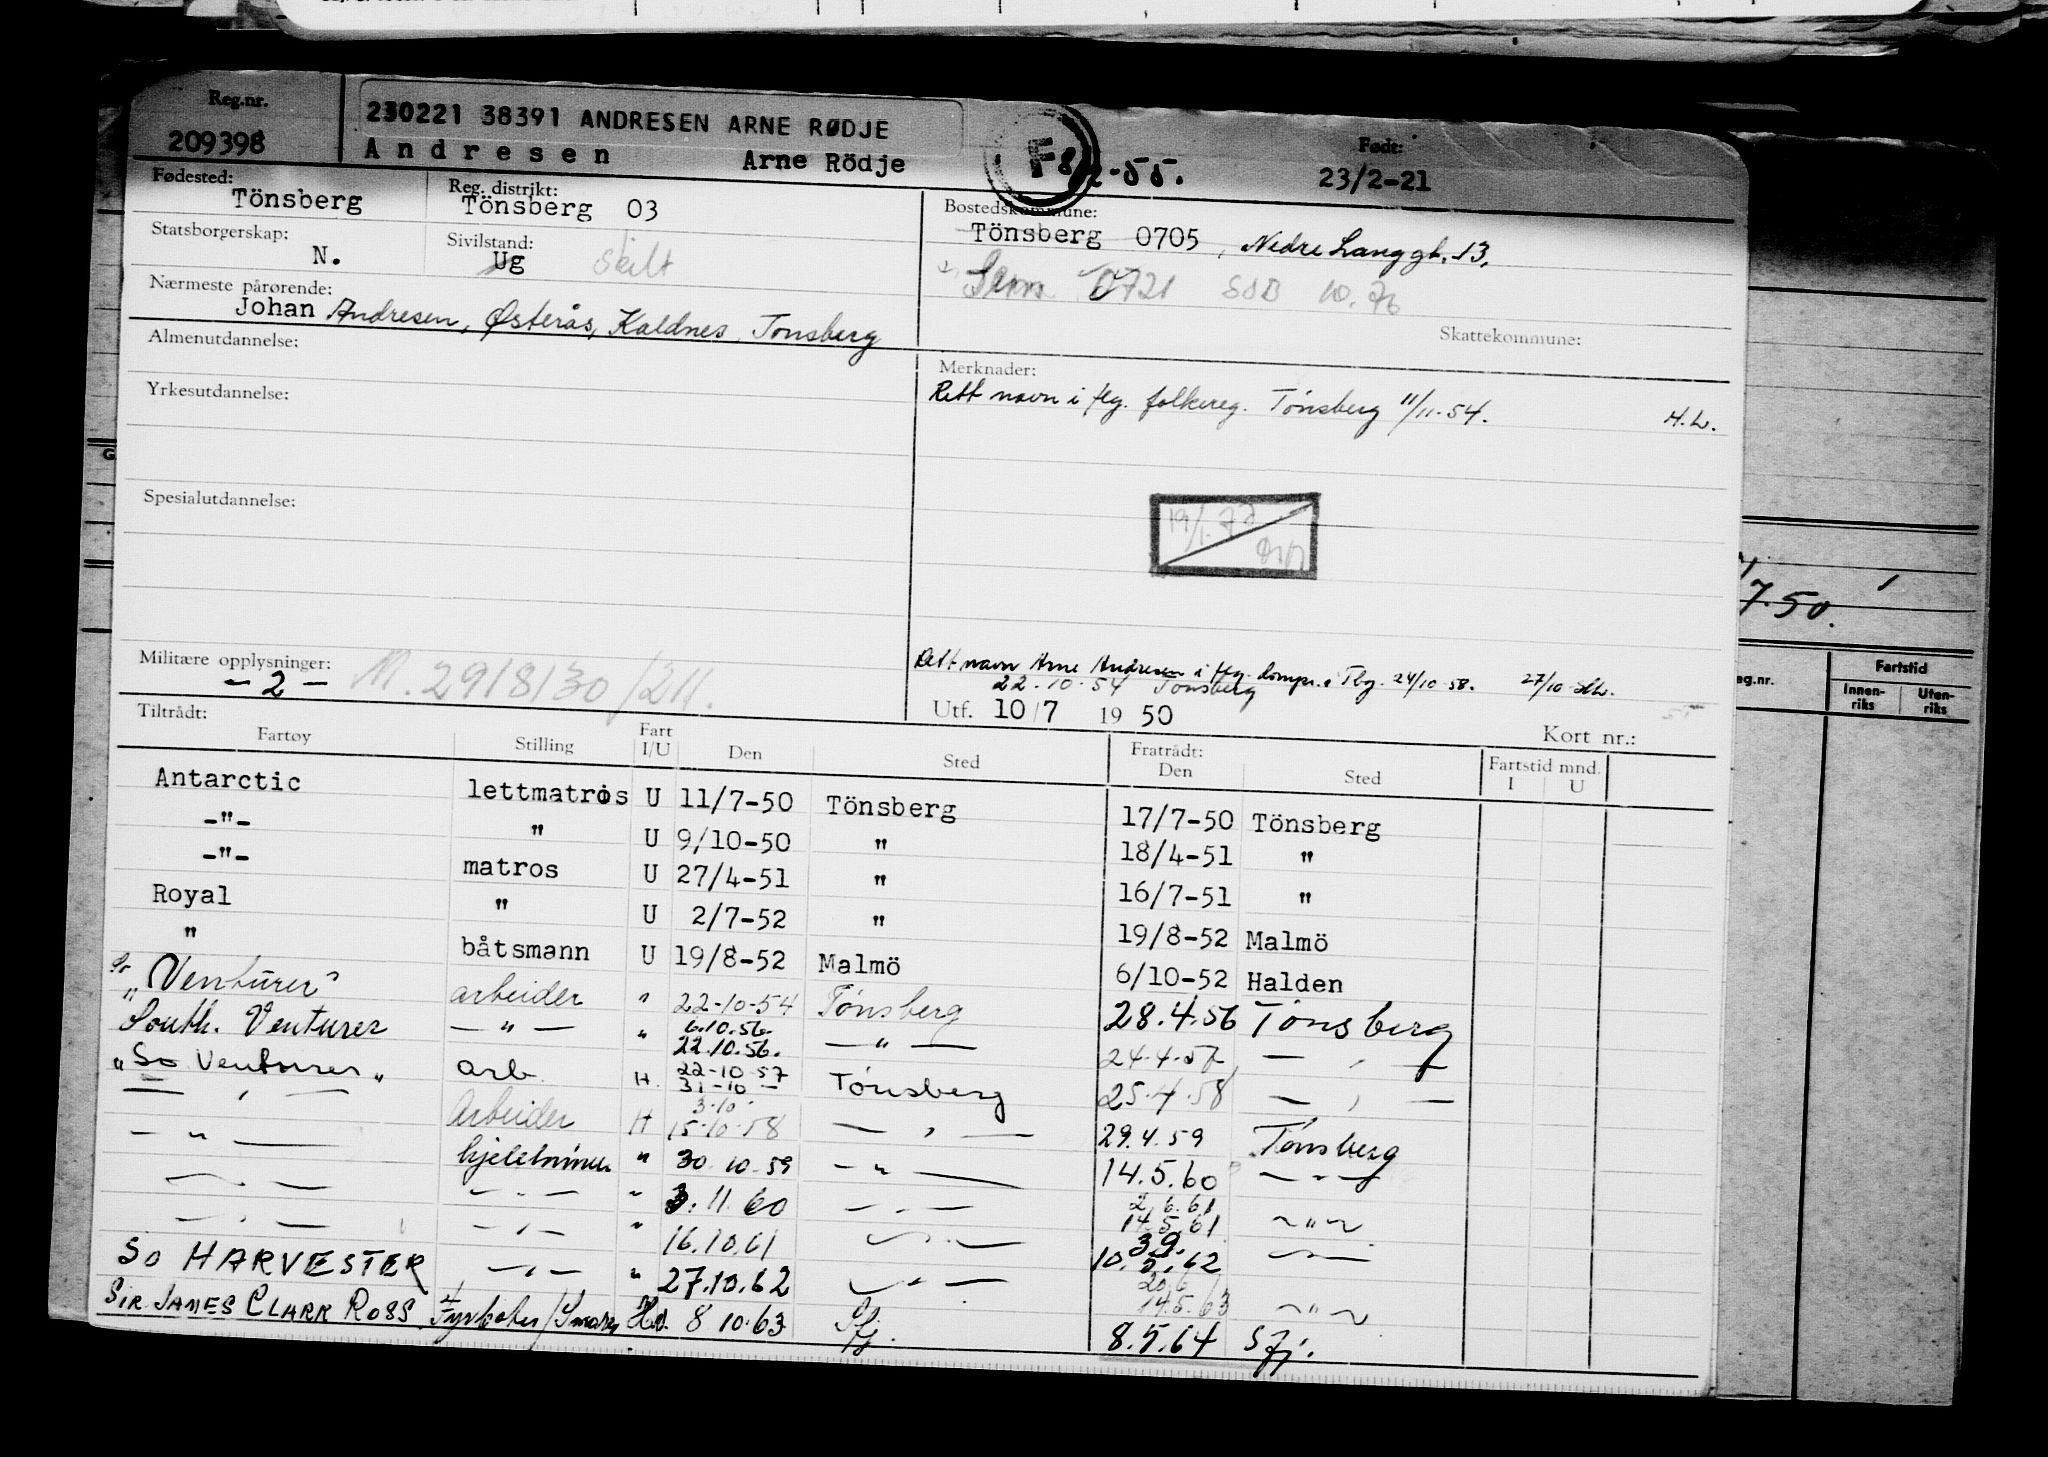 Reg.nr.
209398
230221 38391 ANDRESEN ARNE RØDJE
Andresen Arne Rödje
F 8/2-55.
Født:
23/2-21
Fødested:
Tönsberg
Reg. distrikt:
Tönsberg 03
Bostedskommune:
Tönsberg 0705, Nedre Langgt. 13.
Statsborgerskap:
N.
Sivilstand:
Ug Skilt
Sem 0721 10.76
Nærmeste pårørende:
Johan Andresen, Østerås, Kaldnes, Tønsberg
Skattekommune:
Almenutdannelse:
Merknader:
Rett navn i flg. folkereg. Tönsberg 11/11-54. H.L.
Yrkesutdannelse:
Spesialutdannelse:
19/1.72
Militære opplysninger:
- 2 - M.29/8/30/211.
Rett navn Arne Andresen i flg. Tbg. 24/10-58. 27/10-
22-10-54 Tönsberg
Utf. 10/7 1950
Kort nr.:
Tiltrådt:
Fartøy Stilling Fart I/U Den Sted Fratrådt: Den Sted Fartstid mnd. I U
Antarctic lettmatros U 11/7-50 Tönsberg 17/7-50 Tönsberg
-"- " U 9/10-50 " 18/4-51 "
-"- matros U 27/4-51 " 16/7-51 "
Royal " U 2/7-52 " 19/8-52 Malmö
" båtsmann U 19/8-52 Malmö 6/10-52 Halden
"Venturer" arbeider " 22-10-54 Tönsberg 28.4.56 Tönsberg
South. Venturer - " - " 6.10.56. 22.10.56. - " - 24.4.57 - " -
"So Venturer" arb. H. 22-10-57 31-10- Tönsberg 25.4.58 - " -
- " - Arbeider H 3-10- 15-10-58 - " - 29.4.59 Tönsberg
- " - " 30.10.59 - " - 14.5.60 - " -
- " - - " - " 3.11.60 - " - 2.6.61 14.5.61 - " -
- " - - " - " 16.10.61 - " - 39. 10.5.62 - " -
So HARVESTER - " - " 27.10.62 - " - 20.6 14.5.63 - " -
SIR JAMES CLARK ROSS Fyrbøter/Smører 8 10.63 Sfj. 8.5.64 Sfj.
7.50.
Fartstid
Innen-riks Uten-riks